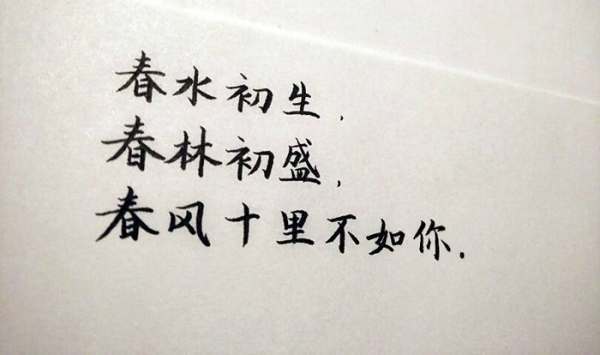 春水初生,
春林初盛,
春风十里不如你.